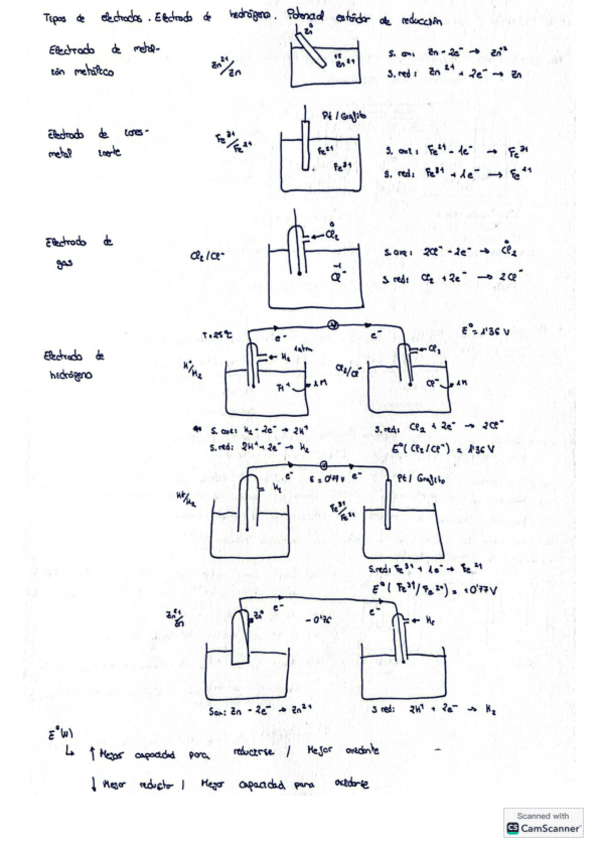 Tipos de electrodos. Electrodo de hidrógeno. Potencial estándar de reducción
Electrodo de metal-
ión metálico
Zn²⁺/Zn
Zn⁰
Zn²⁺
S. oxi: Zn - 2e⁻ → Zn⁺²
S. red: Zn²⁺ + 2e⁻ → Zn
Electrodo de
metal inerte
Fe³⁺/Fe²⁺
Pt / Grafito
Fe²⁺
Fe³⁺
S. oxi: Fe²⁺ - 1e⁻ → Fe³⁺
S. red: Fe³⁺ + 1e⁻ → Fe²⁺
Electrodo de
gas
Cl₂/Cl⁻
Cl₂
Cl⁻
S. oxi: 2Cl⁻ - 2e⁻ → Cl₂
S. red: Cl₂ + 2e⁻ → 2Cl⁻
Electrodo de
hidrógeno
T = 25ºC
e⁻
e⁻
E⁰ = 1'36 V
H⁺/H₂
H₂ 1atm
H⁺ 1M
Cl₂/Cl⁻
Cl₂
Cl⁻ 1M
S. oxi: H₂ - 2e⁻ → 2H⁺
S. red: 2H⁺ - 2e⁻ → H₂
S. red: Cl₂ + 2e⁻ → 2Cl⁻
E⁰ (Cl₂/Cl⁻) = 1'36 V
e⁻
E = 0'77 V
e⁻
H⁺/H₂
H₂
Fe³⁺/Fe²⁺
Pt / Grafito
S. red: Fe³⁺ + 1e⁻ → Fe²⁺
E⁰ (Fe³⁺/Fe²⁺) = +0'77 V
e⁻
e⁻
Zn²⁺/Zn
Zn⁰
- 0'76
H₂
S oxi: Zn - 2e⁻ → Zn²⁺
S red: 2H⁺ + 2e⁻ → H₂
E⁰ (V)
↳ ↑ Mejor capacidad para reducirse / Mejor oxidante
↓ Mejor reductor / Mejor capacidad para oxidarse
Scanned with
CS CamScanner